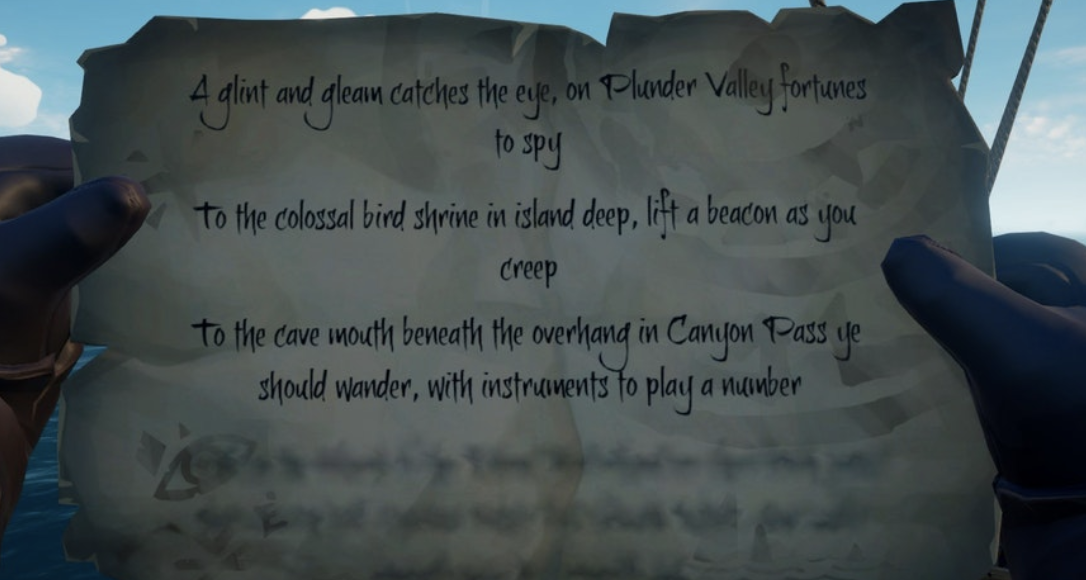 A glint and gleam catches the eye, on Plunder Valley fortunes
to spy
To the colossal bird shrine in island deep, lift a beacon as you
creep
To the cave mouth beneath the overhang in Canyon Pass ye
should wander, with instruments to play a number